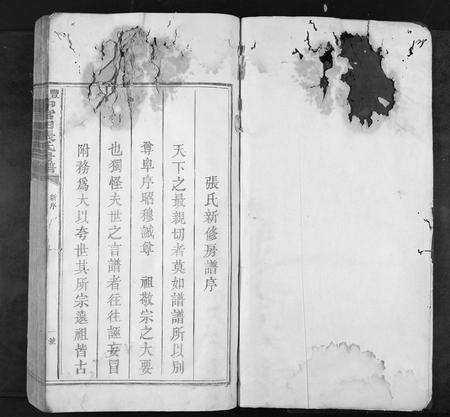 張氏新修房譜序
天下之最親切者莫如譜譜所以別
尊卑序昭穆誠尊 祖敬宗之大要
也獨怪夫世之言譜者往往誣妄冒
附務爲大以夸世其所宗遠祖皆古
豐
新序
一號